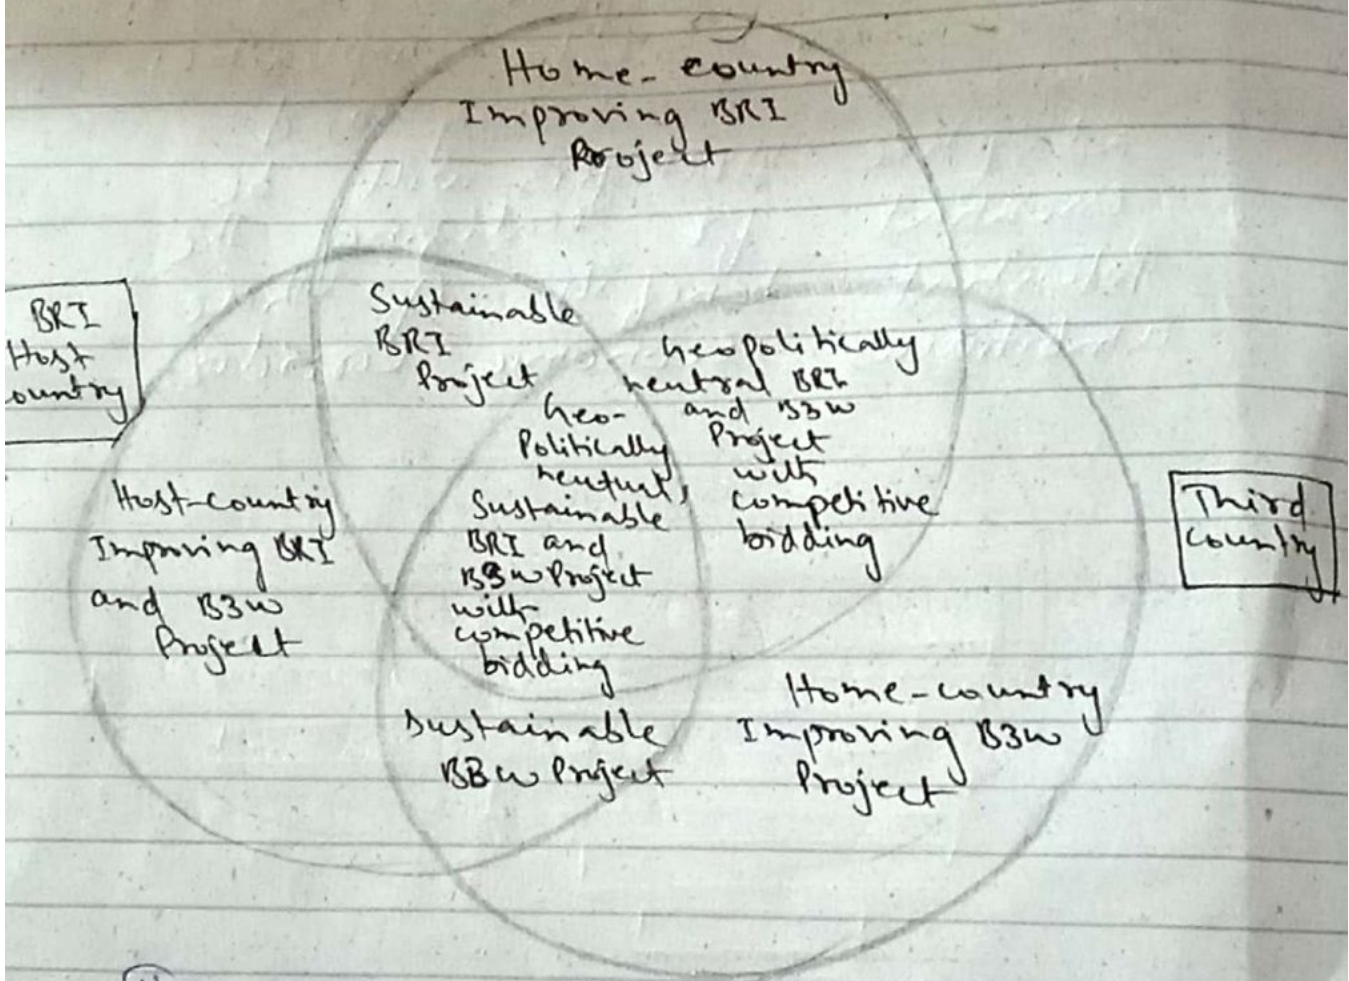 Home-country
Improving BRI
Project
BRI
Host
ountry
Sustainable
BRI
Project
Geopolitically
neutral BRI
and B3W
Project
with
competitive
bidding
Geo-
Politically
neutral,
Sustainable
BRI and
B3W Project
with
competitive
bidding
Host-country
Improving BRI
and B3W
Project
Third
country
Sustainable
BBW Project
Home-country
Improving B3W
Project